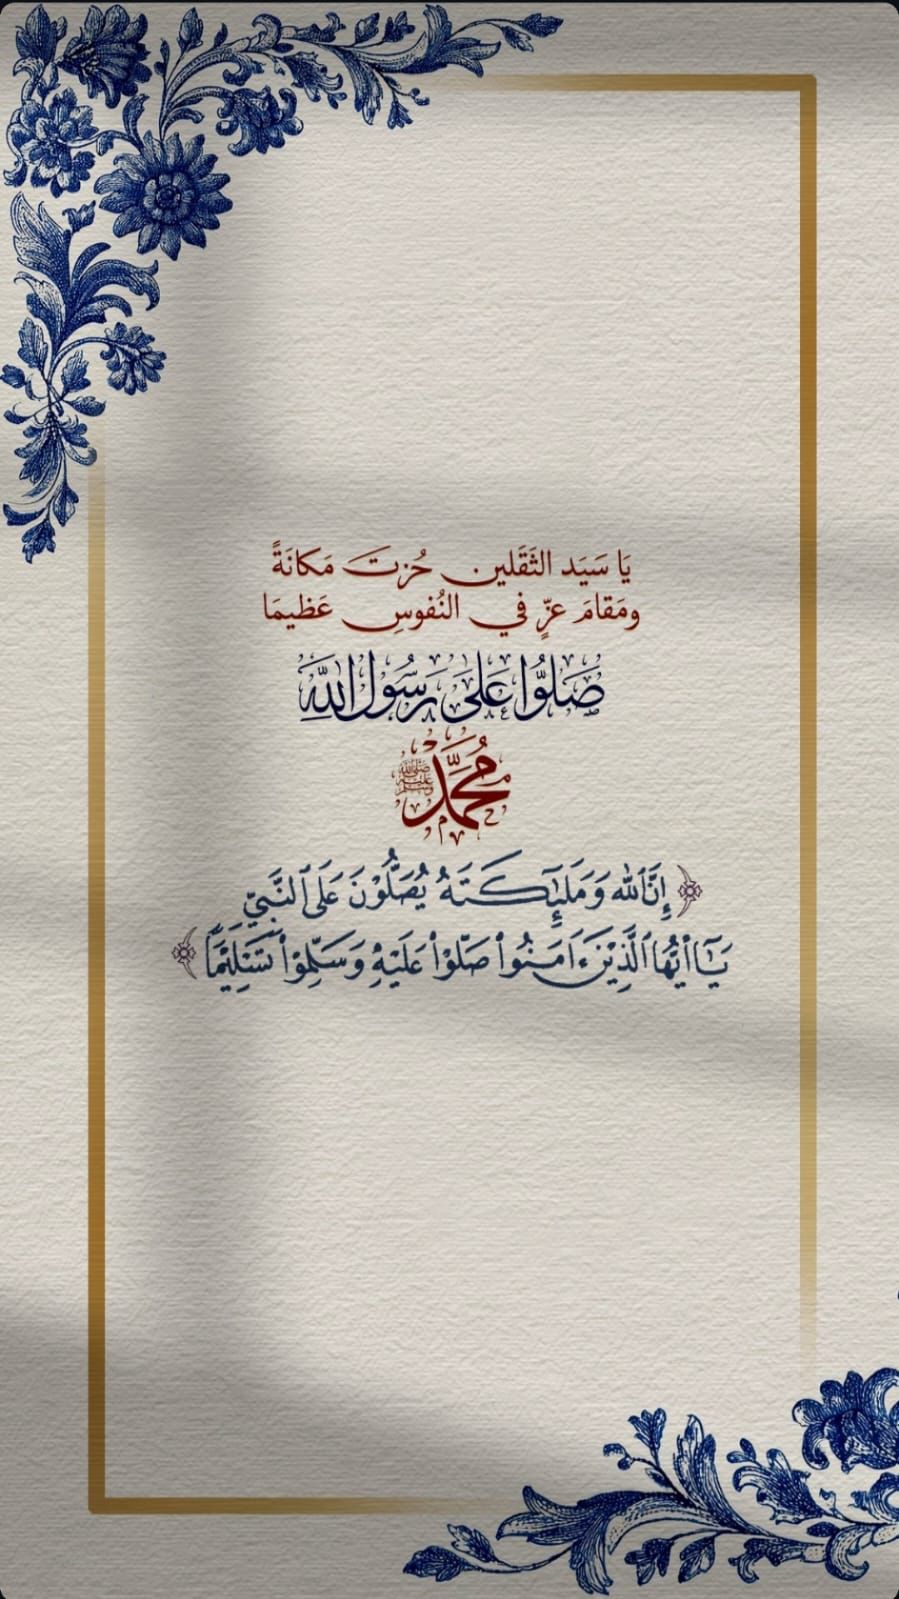 يَا سَيَد الثَقَلين حُزتَ مَكانَةً
ومَقامَ عزٍّ في النُفوسِ عَظيمَا
صَلُّوا عَلَى رَسُول اللَّه
مُحَمَّد ﷺ
﴿ إِنَّ ٱللَّه وَمَلَٰٓئِكَتَهُۥ يُصَلُّوْنَ عَلَى ٱلنَّبِيِّ
يَٰٓأَيُّهَا ٱلَّذِيْنَ ءَامَنُوا۟ صَلُّوْا۟ عَلَيْهِ وَسَلِّمُوْا۟ تَسْلِيْمًا ﴾